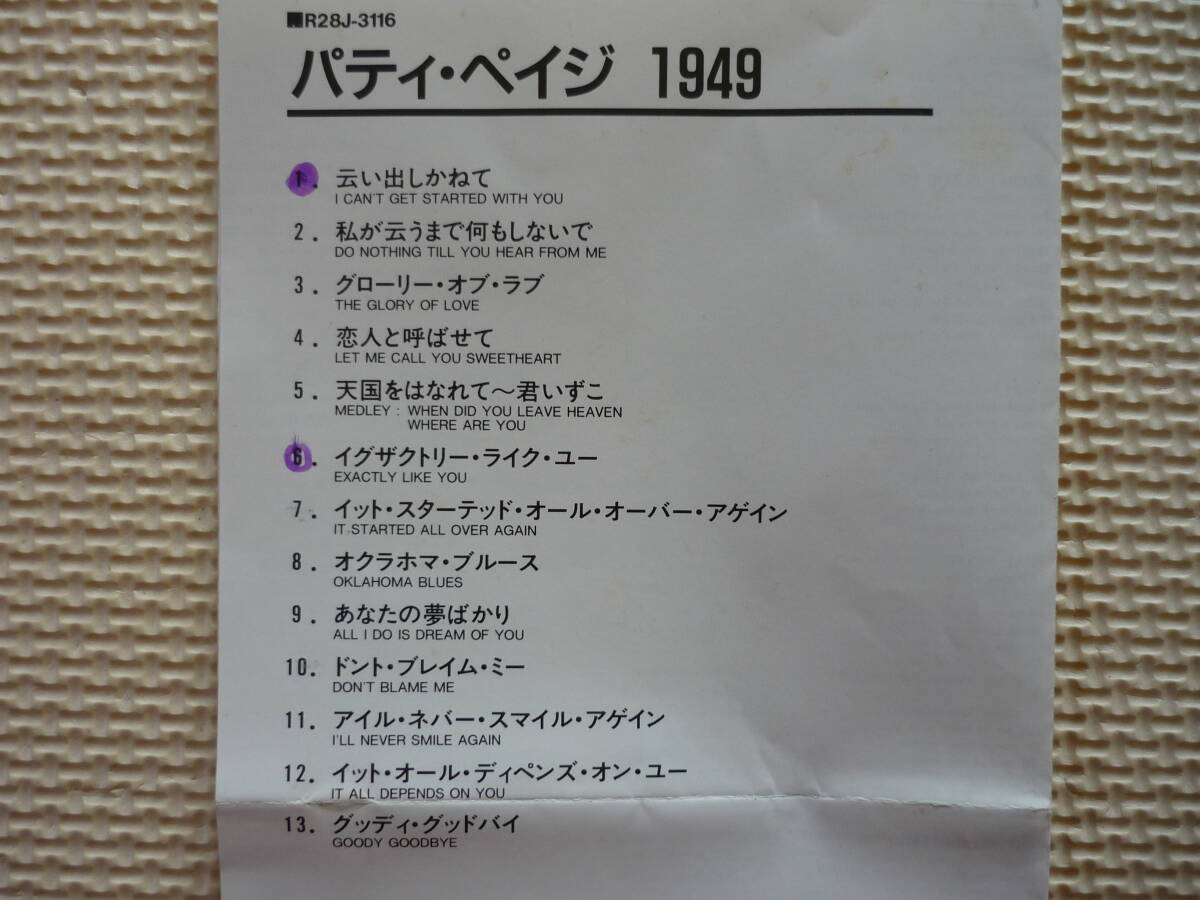 ■R28J-3116
パティ・ペイジ 1949
1. 云い出しかねて
I CAN'T GET STARTED WITH YOU
2. 私が云うまで何もしないで
DO NOTHING TILL YOU HEAR FROM ME
3. グローリー・オブ・ラブ
THE GLORY OF LOVE
4. 恋人と呼ばせて
LET ME CALL YOU SWEETHEART
5. 天国をはなれて〜君いずこ
MEDLEY : WHEN DID YOU LEAVE HEAVEN
WHERE ARE YOU
6. イグザクトリー・ライク・ユー
EXACTLY LIKE YOU
7. イット・スターテッド・オール・オーバー・アゲイン
IT STARTED ALL OVER AGAIN
8. オクラホマ・ブルース
OKLAHOMA BLUES
9. あなたの夢ばかり
ALL I DO IS DREAM OF YOU
10. ドント・ブレイム・ミー
DON'T BLAME ME
11. アイル・ネバー・スマイル・アゲイン
I'LL NEVER SMILE AGAIN
12. イット・オール・ディペンズ・オン・ユー
IT ALL DEPENDS ON YOU
13. グッディ・グッドバイ
GOODY GOODBYE